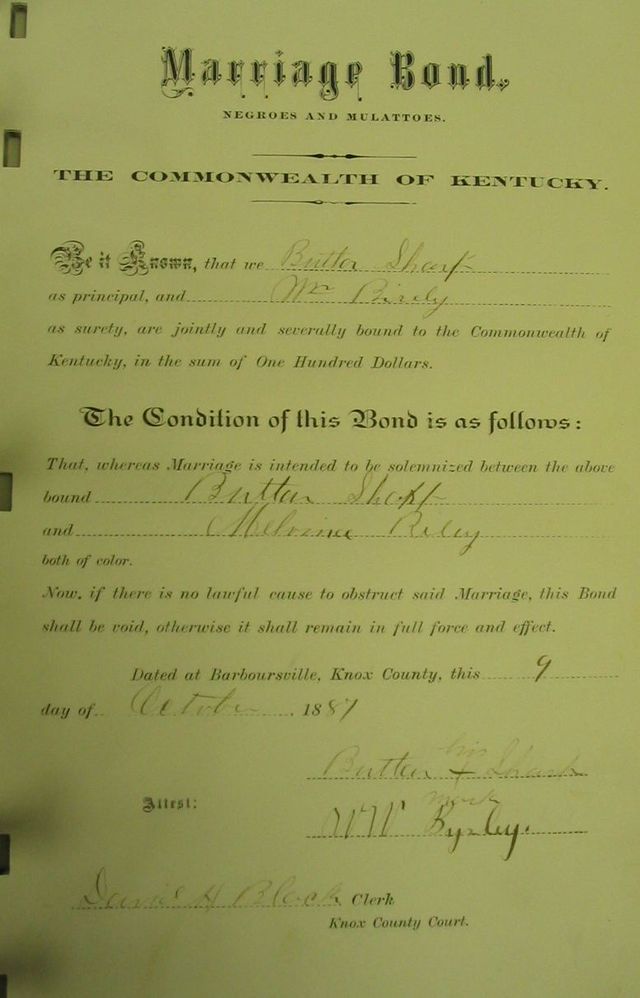 Marriage Bond.
NEGROES AND MULATTOES.
THE COMMONWEALTH OF KENTUCKY.
Be it Known, that we Button Sharp
as principal, and Wm Birely
as surety, are jointly and severally bound to the Commonwealth of
Kentucky, in the sum of One Hundred Dollars.
The Condition of this Bond is as follows:
That, whereas Marriage is intended to be solemnized between the above
bound Button Sharp
and Melvinia Riley
both of color.
Now, if there is no lawful cause to obstruct said Marriage, this Bond
shall be void, otherwise it shall remain in full force and effect.
Dated at Barboursville, Knox County, this 9
day of October, 1887
his
Button X Sharp
mark
Attest:
WW Byrley.
David H Black Clerk
Knox County Court.